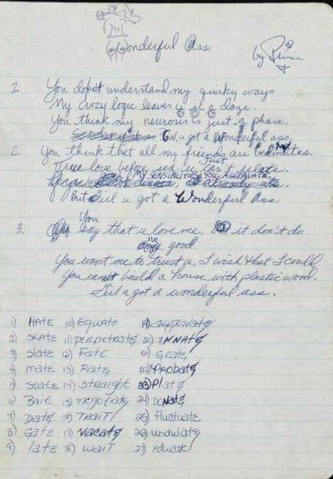 Wonderful Ass
by Prince
1. You do not understand my quirky ways
My crazy logic leaves u in a daze.
You think my neurosis is just a phase.
But u got a wonderful ass.
2. You think that all my friends are
True love
My sensibilities you
But u got a Wonderful Ass
You
3. say that u love me, it don't do
no good
You want me to trust u, I wish that I could
You can't build a house with plastic wood.
But u got a wonderful ass.
1) HATE 10) EQUATE
2) SKATE 11) PERPETRATE INNATE
3) slate 12) Fate Grate
4) mate 13) Rate Probate
5) State 14) straight Plate
6) Bait 15) negotiate 24) Donate
7) Date 16) Trait 25) fluctuate
8) Gate 17) Vacate 26) undulate
9) late 18) wait 27) educate